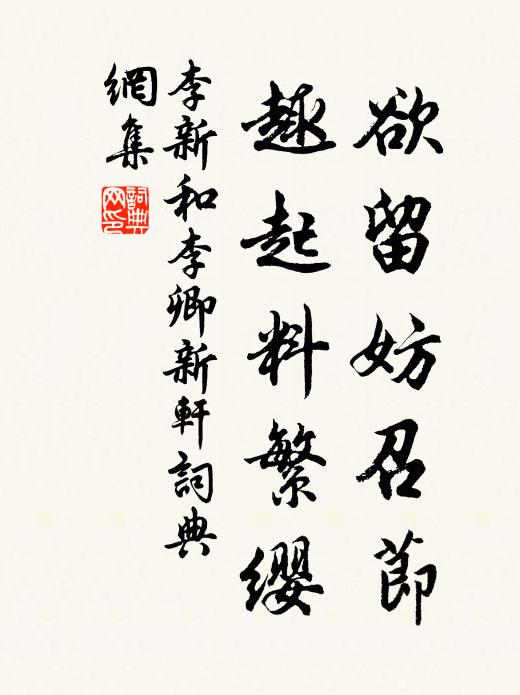 欲留妨召節
趣起料繁纓
李新和李卿新軒詞典
網集
詞典
网印